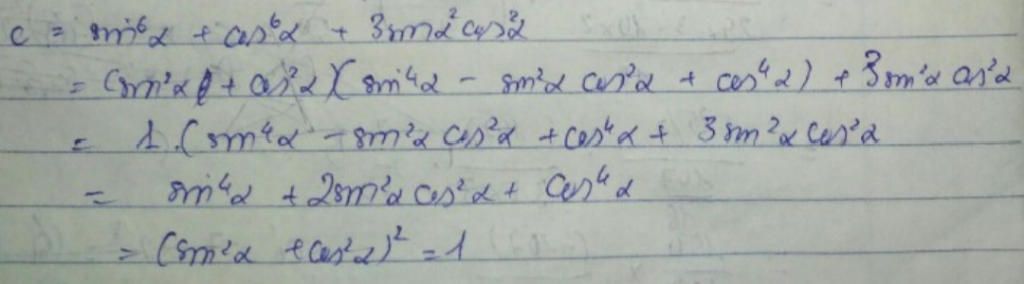 C = sin⁶α + cos⁶α + 3sin²α cos²α
= (sin²α + cos²α)(sin⁴α - sin²α cos²α + cos⁴α) + 3sin²α cos²α
= 1.(sin⁴α - sin²α cos²α + cos⁴α + 3sin²α cos²α
= sin⁴α + 2sin²α cos²α + cos⁴α
= (sin²α + cos²α)² = 1